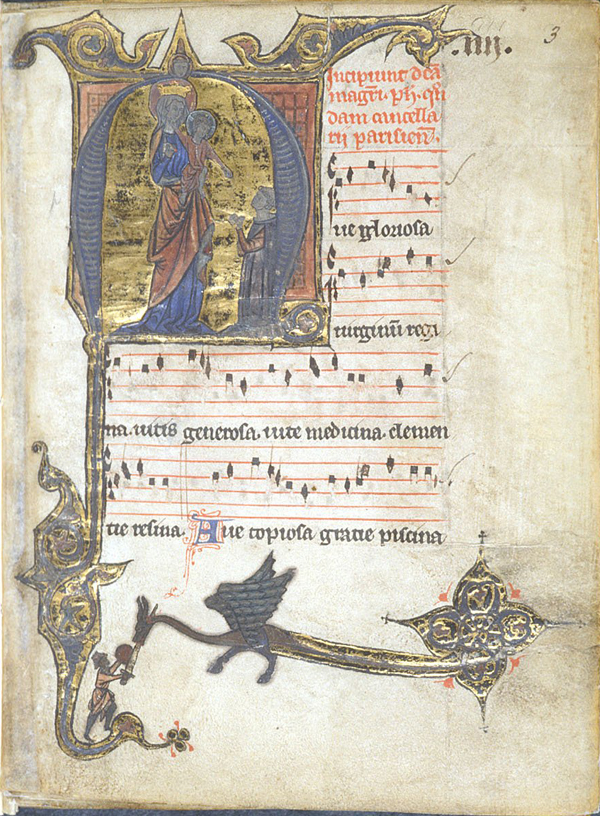 .IIII.
3
Incipiunt dca
magri. ph. qn
dam cancella
rii parisien.
Ave gloriosa
virginum regi
na. vitis generosa. vite medicina. clemen
tie resina. Ave copiosa gratie piscina